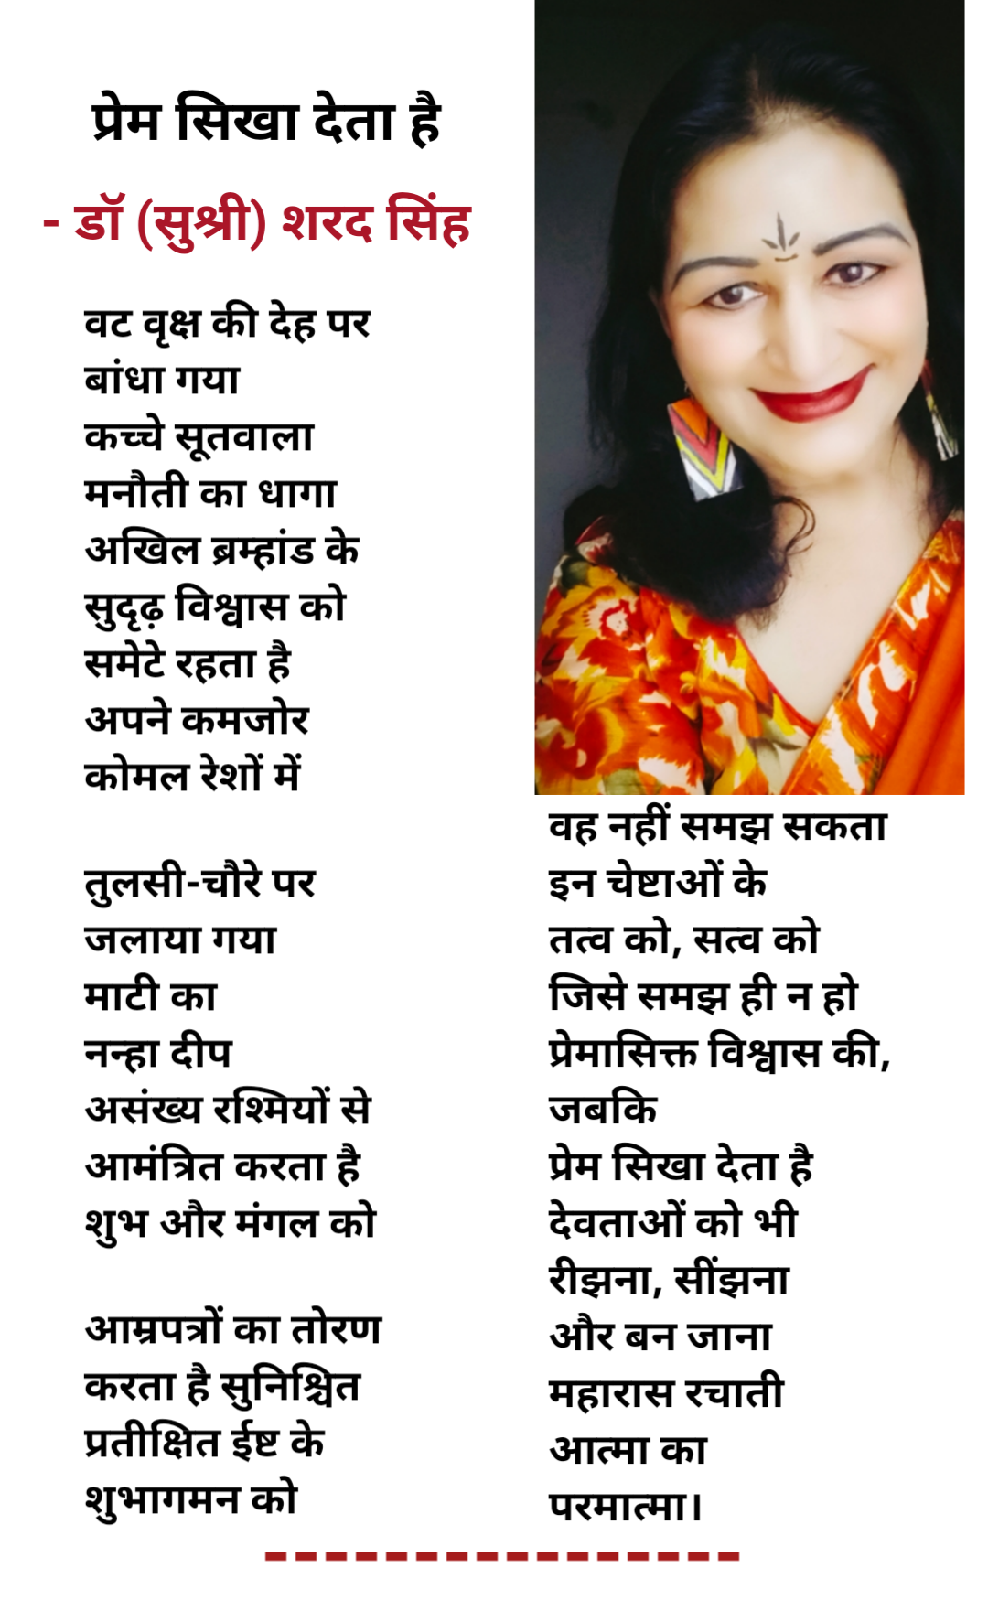 प्रेम सिखा देता है
- डॉ (सुश्री) शरद सिंह
वट वृक्ष की देह पर
बांधा गया
कच्चे सूतवाला
मनौती का धागा
अखिल ब्रम्हांड के
सुदृढ़ विश्वास को
समेटे रहता है
अपने कमजोर
कोमल रेशों में
तुलसी-चौरे पर
जलाया गया
माटी का
नन्हा दीप
असंख्य रश्मियों से
आमंत्रित करता है
शुभ और मंगल को
आम्रपत्रों का तोरण
करता है सुनिश्चित
प्रतीक्षित ईष्ट के
शुभागमन को
वह नहीं समझ सकता
इन चेष्टाओं के
तत्व को, सत्व को
जिसे समझ ही न हो
प्रेमासिक्त विश्वास की,
जबकि
प्रेम सिखा देता है
देवताओं को भी
रीझना, सींझना
और बन जाना
महारास रचाती
आत्मा का
परमात्मा।